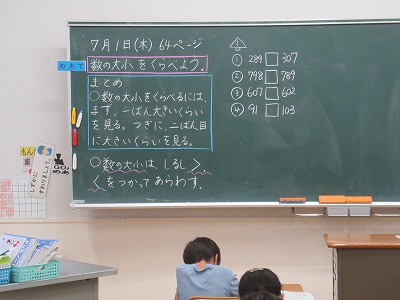 7月1日(木) 64ページ
めあて
数の大小をくらべよう。
まとめ
○数の大小をくらべるには、
まず、一ばん大きいくらい
を見る。つぎに、二ばん目
に大きいくらいを見る。
○数の大小は、しるし>、
<をつかってあらわす。
① 289 □ 307
② 798 □ 789
③ 607 □ 602
④ 91 □ 103
しずかに
すわりましょう。